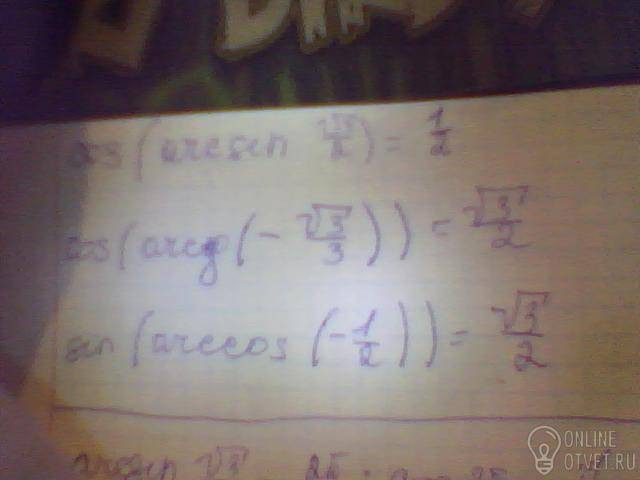 cos(arcsin √3/2) = 1/2
cos(arcg(-√3/3)) = √3/2
sin(arccos(-1/2)) = √3/2
arcsin √3
ONLINE
OTVET.RU